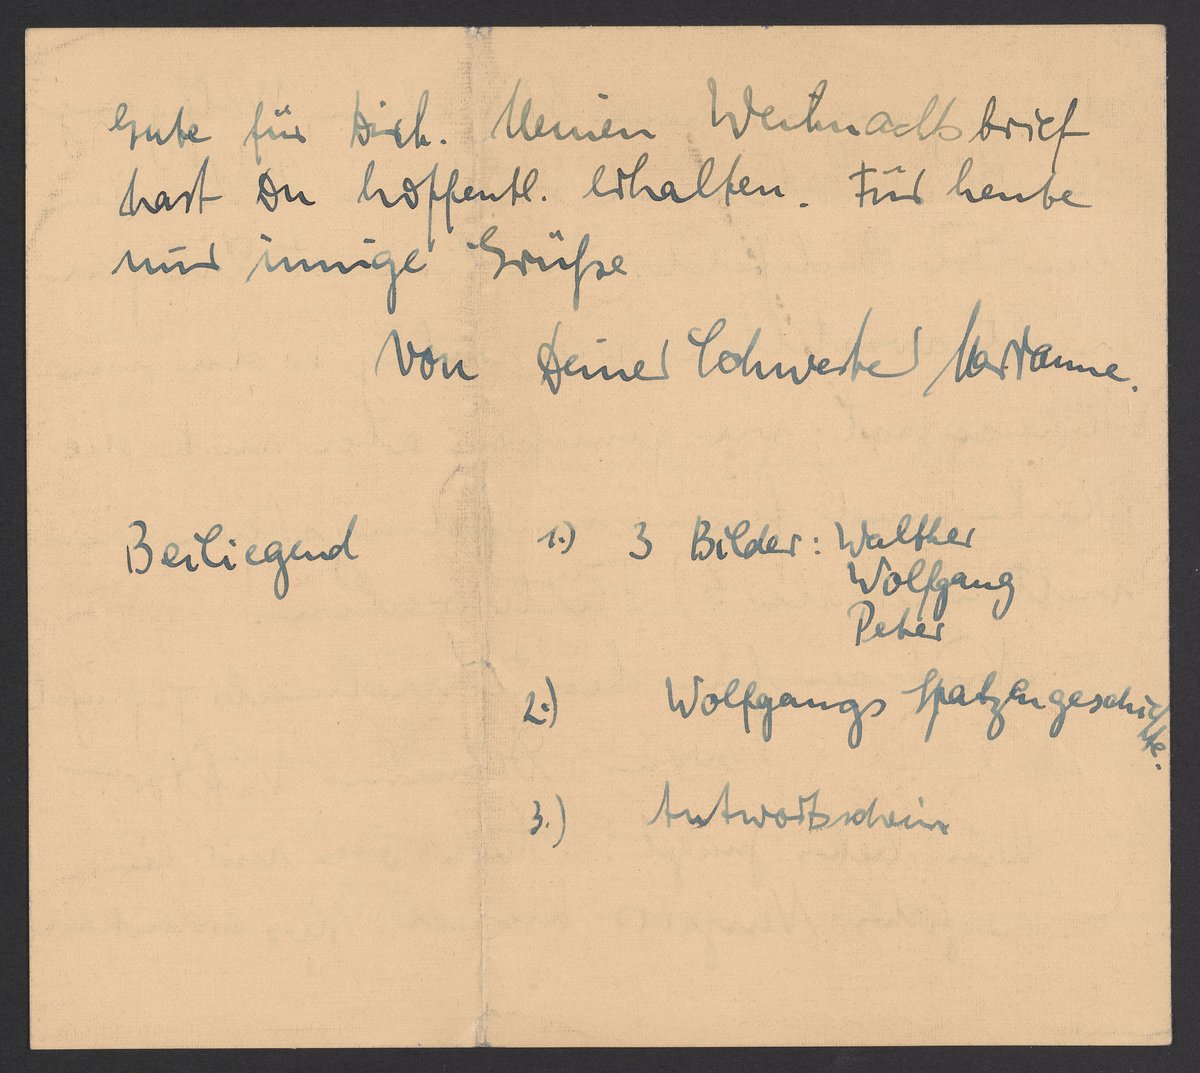 Gute für Dich. Meinen Weihnachtsbrief
hast Du hoffentl. erhalten. Für heute
nur innige Grüße
von Deiner Schwester Marianne.
Beiliegend 1.) 3 Bilder: Walther
Wolfgang
Peter
2.) Wolfgangs Spatzengeschich
te.
3.) Antwortschein